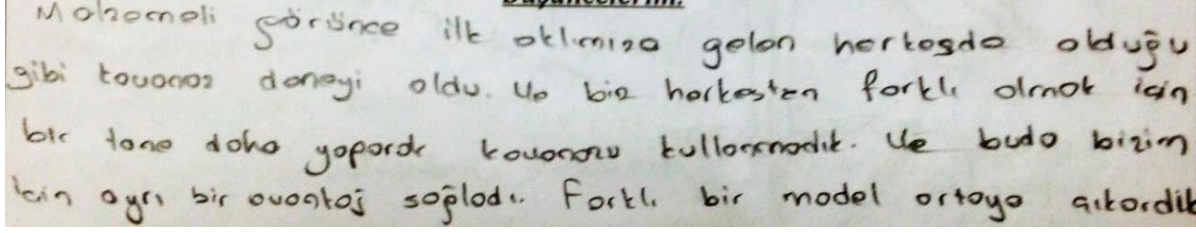 Düşüncelerim:
Malzemeli görünce ilk aklımıza gelen herkesde olduğu
gibi kavanoz deneyi oldu. Ve biz herkesten farklı olmak için
bir tane daha yaparak kavanozu kullanmadık. Ve buda bizim
için ayrı bir avantaj sağladı. Farklı bir model ortaya çıkardık